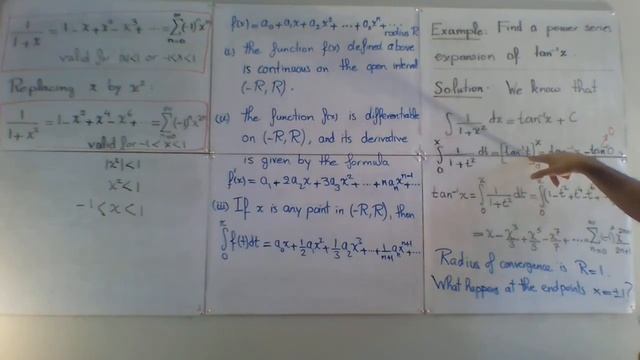 1/(1+x) = 1 - x + x² - x³ + ... = ∑_{n=0}^{∞} (-1)ⁿ xⁿ
valid for |x|<1 or -1<x<1
Replacing x by x²:
1/(1+x²) = 1 - x² + x⁴ - x⁶ + ... = ∑_{n=0}^{∞} (-1)ⁿ x²ⁿ
valid for -1<x<1
|x²|<1
x²<1
-1<x<1
f(x) = a₀ + a₁x + a₂x² + ... + aₙxⁿ + ...
radius R
(i) the function f(x) defined above
is continuous on the open interval
(-R, R).
(ii) the function f(x) is differentiable
on (-R, R), and its derivative
is given by the formula
f'(x) = a₁ + 2a₂x + 3a₃x² + ... + naₙxⁿ⁻¹ + ...
(iii) If x is any point in (-R, R), then
∫₀ˣ f(t)dt = a₀x + 1/2 a₁x² + 1/3 a₂x³ + ... + 1/(n+1) aₙxⁿ⁺¹ + ...
Example: Find a power series
expansion of tan⁻¹x.
Solution: We know that
∫ 1/(1+x²) dx = tan⁻¹x + C
∫₀ˣ 1/(1+t²) dt = [tan⁻¹t]₀ˣ = tan⁻¹x - tan⁻¹0
tan⁻¹x = ∫₀ˣ 1/(1+t²) dt = ∫₀ˣ (1 - t² + t⁴ - t⁶ +
= x - x³/3 + x⁵/5 - x⁷/7 + ... = ∑_{n=0}^{∞} (-1)ⁿ x²ⁿ⁺¹/(2n+1)
Radius of convergence is R=1.
What happens at the endpoints x=±1?